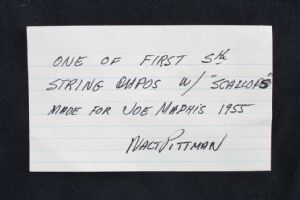 ONE OF FIRST 5th
STRING CAPOS W/ "SCALLOPS"
MADE FOR JOE MAPHIS 1955
WALT PITTMAN